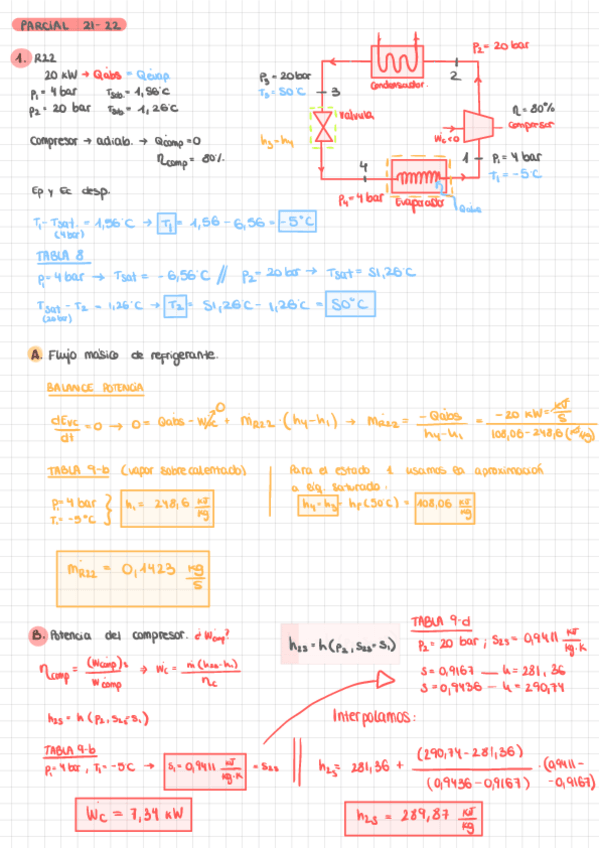 PARCIAL 21-22
1. R22
20 kW → Qabs = Qevap
P1 = 4 bar Tsob. = 1,56°C
P2 = 20 bar Tsub = 1,26°C
Compresor → adiab. → Qcomp = 0
ηcomp = 80%
Ep y Ec desp.
P2 = 20 bar
Condensador
2
P3 = 20 bar
T3 = 50°C
3
Válvula
h3 = h4
η = 80%
compresor
Wc<0
1
P1 = 4 bar
T1 = -5°C
4
P4 = 4 bar
Evaporador
Qabs
T1 - Tsat. (4 bar) = 1,56°C → T1 = 1,56 - 6,56 = -5°C
TABLA 8
P1 = 4 bar → Tsat = -6,56°C // P2 = 20 bar → Tsat = 51,26°C
Tsat (20 bar) - T2 = 1,26°C → T2 = 51,26°C - 1,26°C = 50°C
A. Flujo másico de refrigerante.
BALANCE POTENCIA
dEvc/dt = 0 → 0 = Qabs - Wc + ṁR22 · (h4 - h1) → ṁR22 = -Qabs/(h4 - h1) = -20 kW = kJ/s / 108,06 - 248,6 (kJ/kg)
TABLA 9-b (vapor sobrecalentado)
P1 = 4 bar
T1 = -5°C } h1 = 248,6 kJ/kg
Para el estado 4 usamos la aproximación
a líq. saturado:
h4 = h3 = hf (50°C) = 108,06 kJ/kg
ṁR22 = 0,1423 kg/s
B. Potencia del compresor. ¿Wcomp?
ηcomp = (Wcomp)s / Wcomp ⇒ Wc = ṁ(h2s - h1) / ηc
h2s = h (P2, s2s = s1)
TABLA 9-b
P1 = 4 bar, T1 = -5°C → s1 = 0,9411 kJ/kg·K = s2s
Wc = 7,34 kW
h2s = h (P2, s2s = s1)
TABLA 9-d
P2 = 20 bar ; s2s = 0,9411 kJ/kg·K
s = 0,9167 — h = 281,36
s = 0,9436 — h = 290,74
Interpolamos:
h2s = 281,36 + (290,74 - 281,36) / (0,9436 - 0,9167) · (0,9411 - 0,9167)
h2s = 289,87 kJ/kg